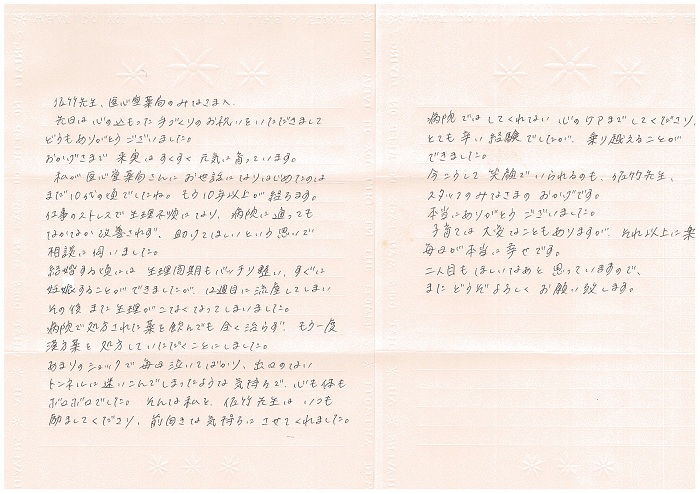 佐竹先生、医心堂薬局のみなさまへ
先日は心の込もった手づくりのお祝いをいただきまして
どうもありがとうございました。
おかげさまで 未来はすくすく元気に育っています。
私が医心堂薬局さんにお世話になりはじめたのは
まだ10代の頃でしたね。もう10年以上が経ちます。
仕事のストレスで生理不順になり、病院に通っても
なかなか改善されず、助けてほしいという思いで
相談に伺いました。
結婚する頃には 生理周期もバッチリ整い、すぐに
妊娠することができましたが、 週目に流産してしまい
その後 また生理がこなくなってしまいました。
病院で処方された薬を飲んでも全く治らず、もう一度
漢方薬を処方していただくことにしました。
あまりのショックで毎日泣いてばかり、出口のない
トンネルに迷いこんでしまったような気持ちで、心も体も
ボロボロでした。そんな私を、佐竹先生はいつも
励ましてくださり、前向きな気持ちにさせてくれました。
病院ではしてくれない心のケアまでしてくださり、
とても辛い経験でしたが、乗り越えることが
できました。
今こうして笑顔でいられるのも、佐竹先生、
スタッフのみなさまのおかげです。
本当にありがとうございました。
子育ては大変なこともありますが、それ以上に楽
毎日が本当に幸せです。
二人目もほしいなあと思っていますので、
またどうぞよろしくお願い致します。